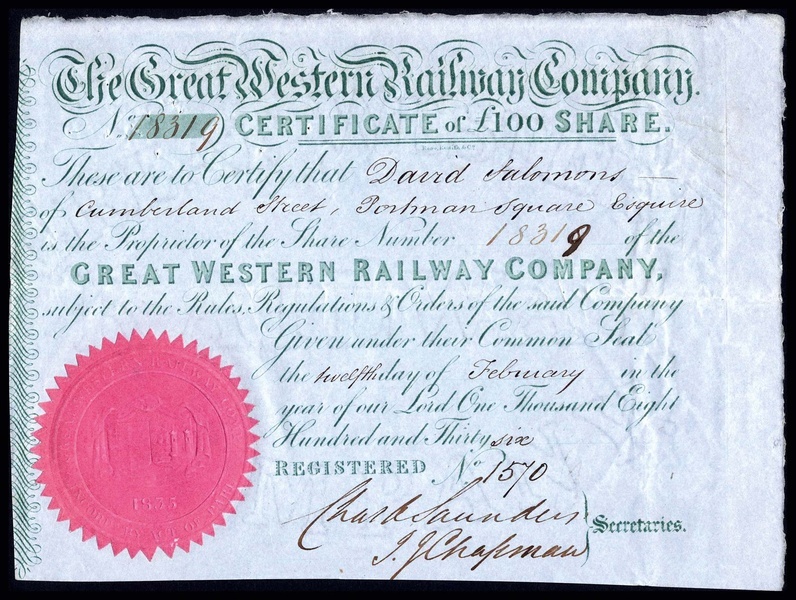 The Great Western Railway Company.
No. 18319 CERTIFICATE of £100 SHARE.
These are to Certify that David Salomons
of Cumberland Street, Portman Square Esquire
is the Proprietor of the Share Number 18319 of the
GREAT WESTERN RAILWAY COMPANY,
subject to the Rules, Regulations & Orders of the said Company
Given under their Common Seal
the twelfth day of February in the
year of our Lord One Thousand Eight
Hundred and Thirty six
REGISTERED No. 1570
Chas A Saunders
J. J. Chapman
Secretaries.
1835